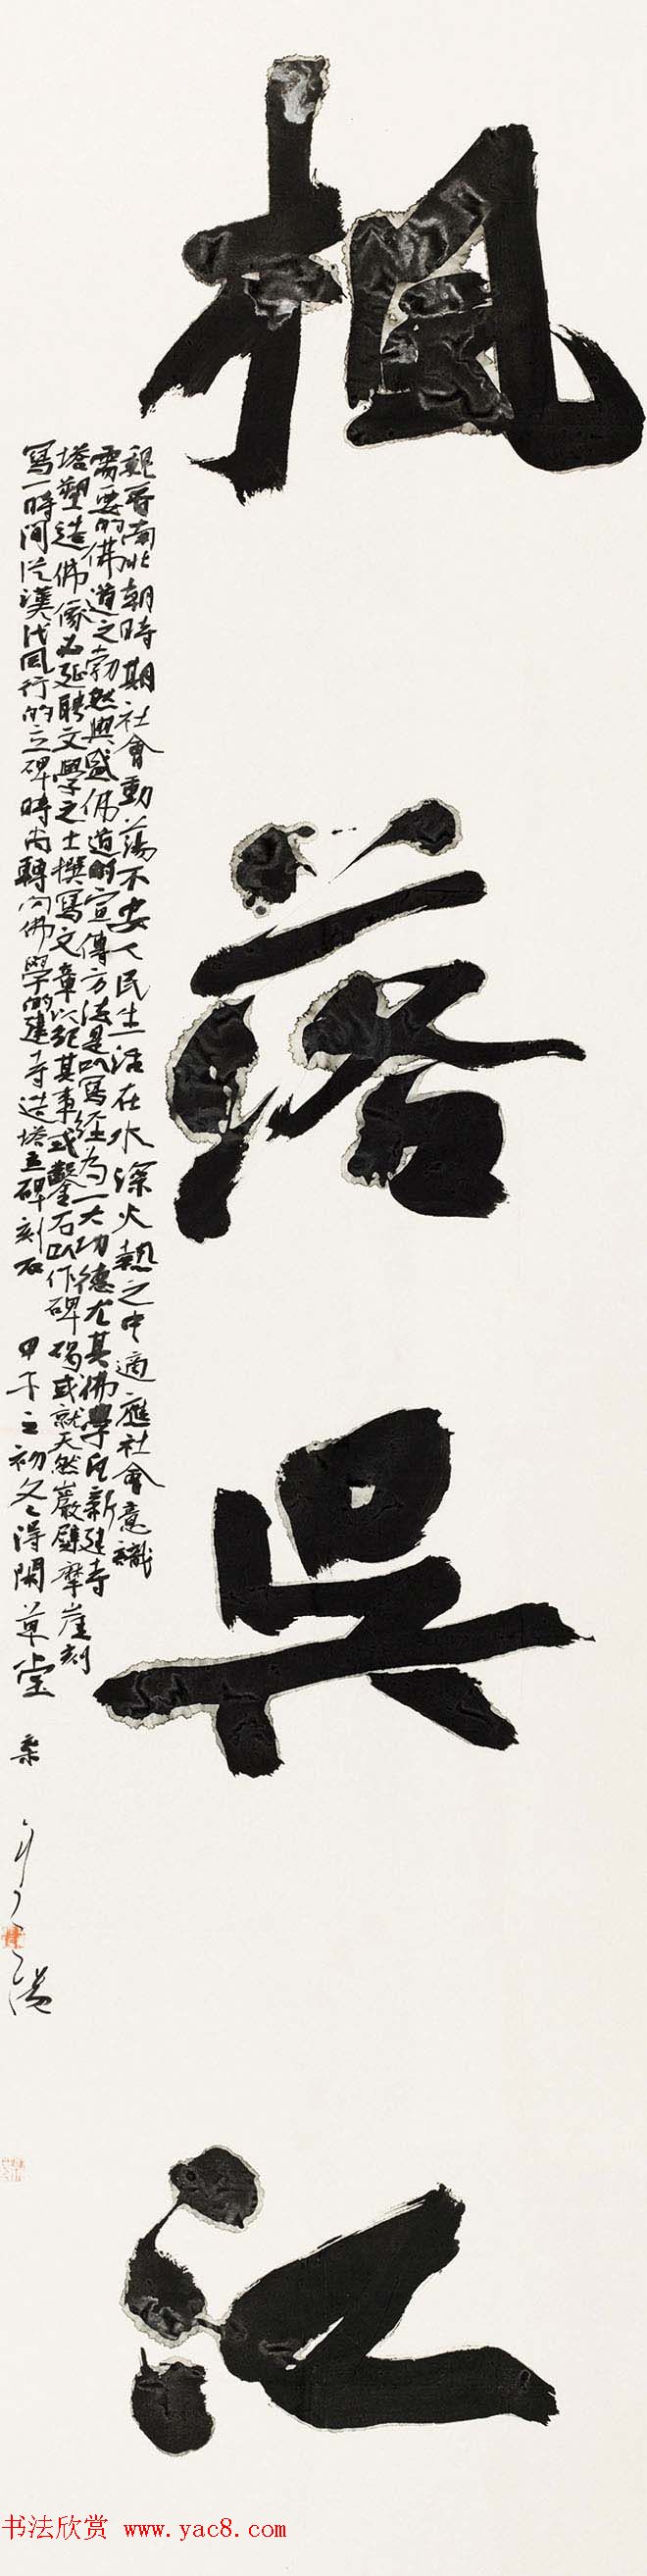 楓落吳江
魏晉南北朝時期社會動蕩不安人民生活在水深火熱之中適應社會意識
需要的佛道之勃然興盛佛道的宣傳方法是以寫經為一大功德尤其佛學凡新建寺
塔塑造佛像必延聘文學之士撰寫文章以記其事或鑿石以作碑碣或就天然巖壁摩崖刻
寫一時間從漢代風行的立碑時尚轉向佛學的建寺造塔立碑刻石 甲午之初冬得閑草堂
书法欣赏 www.yac8.com